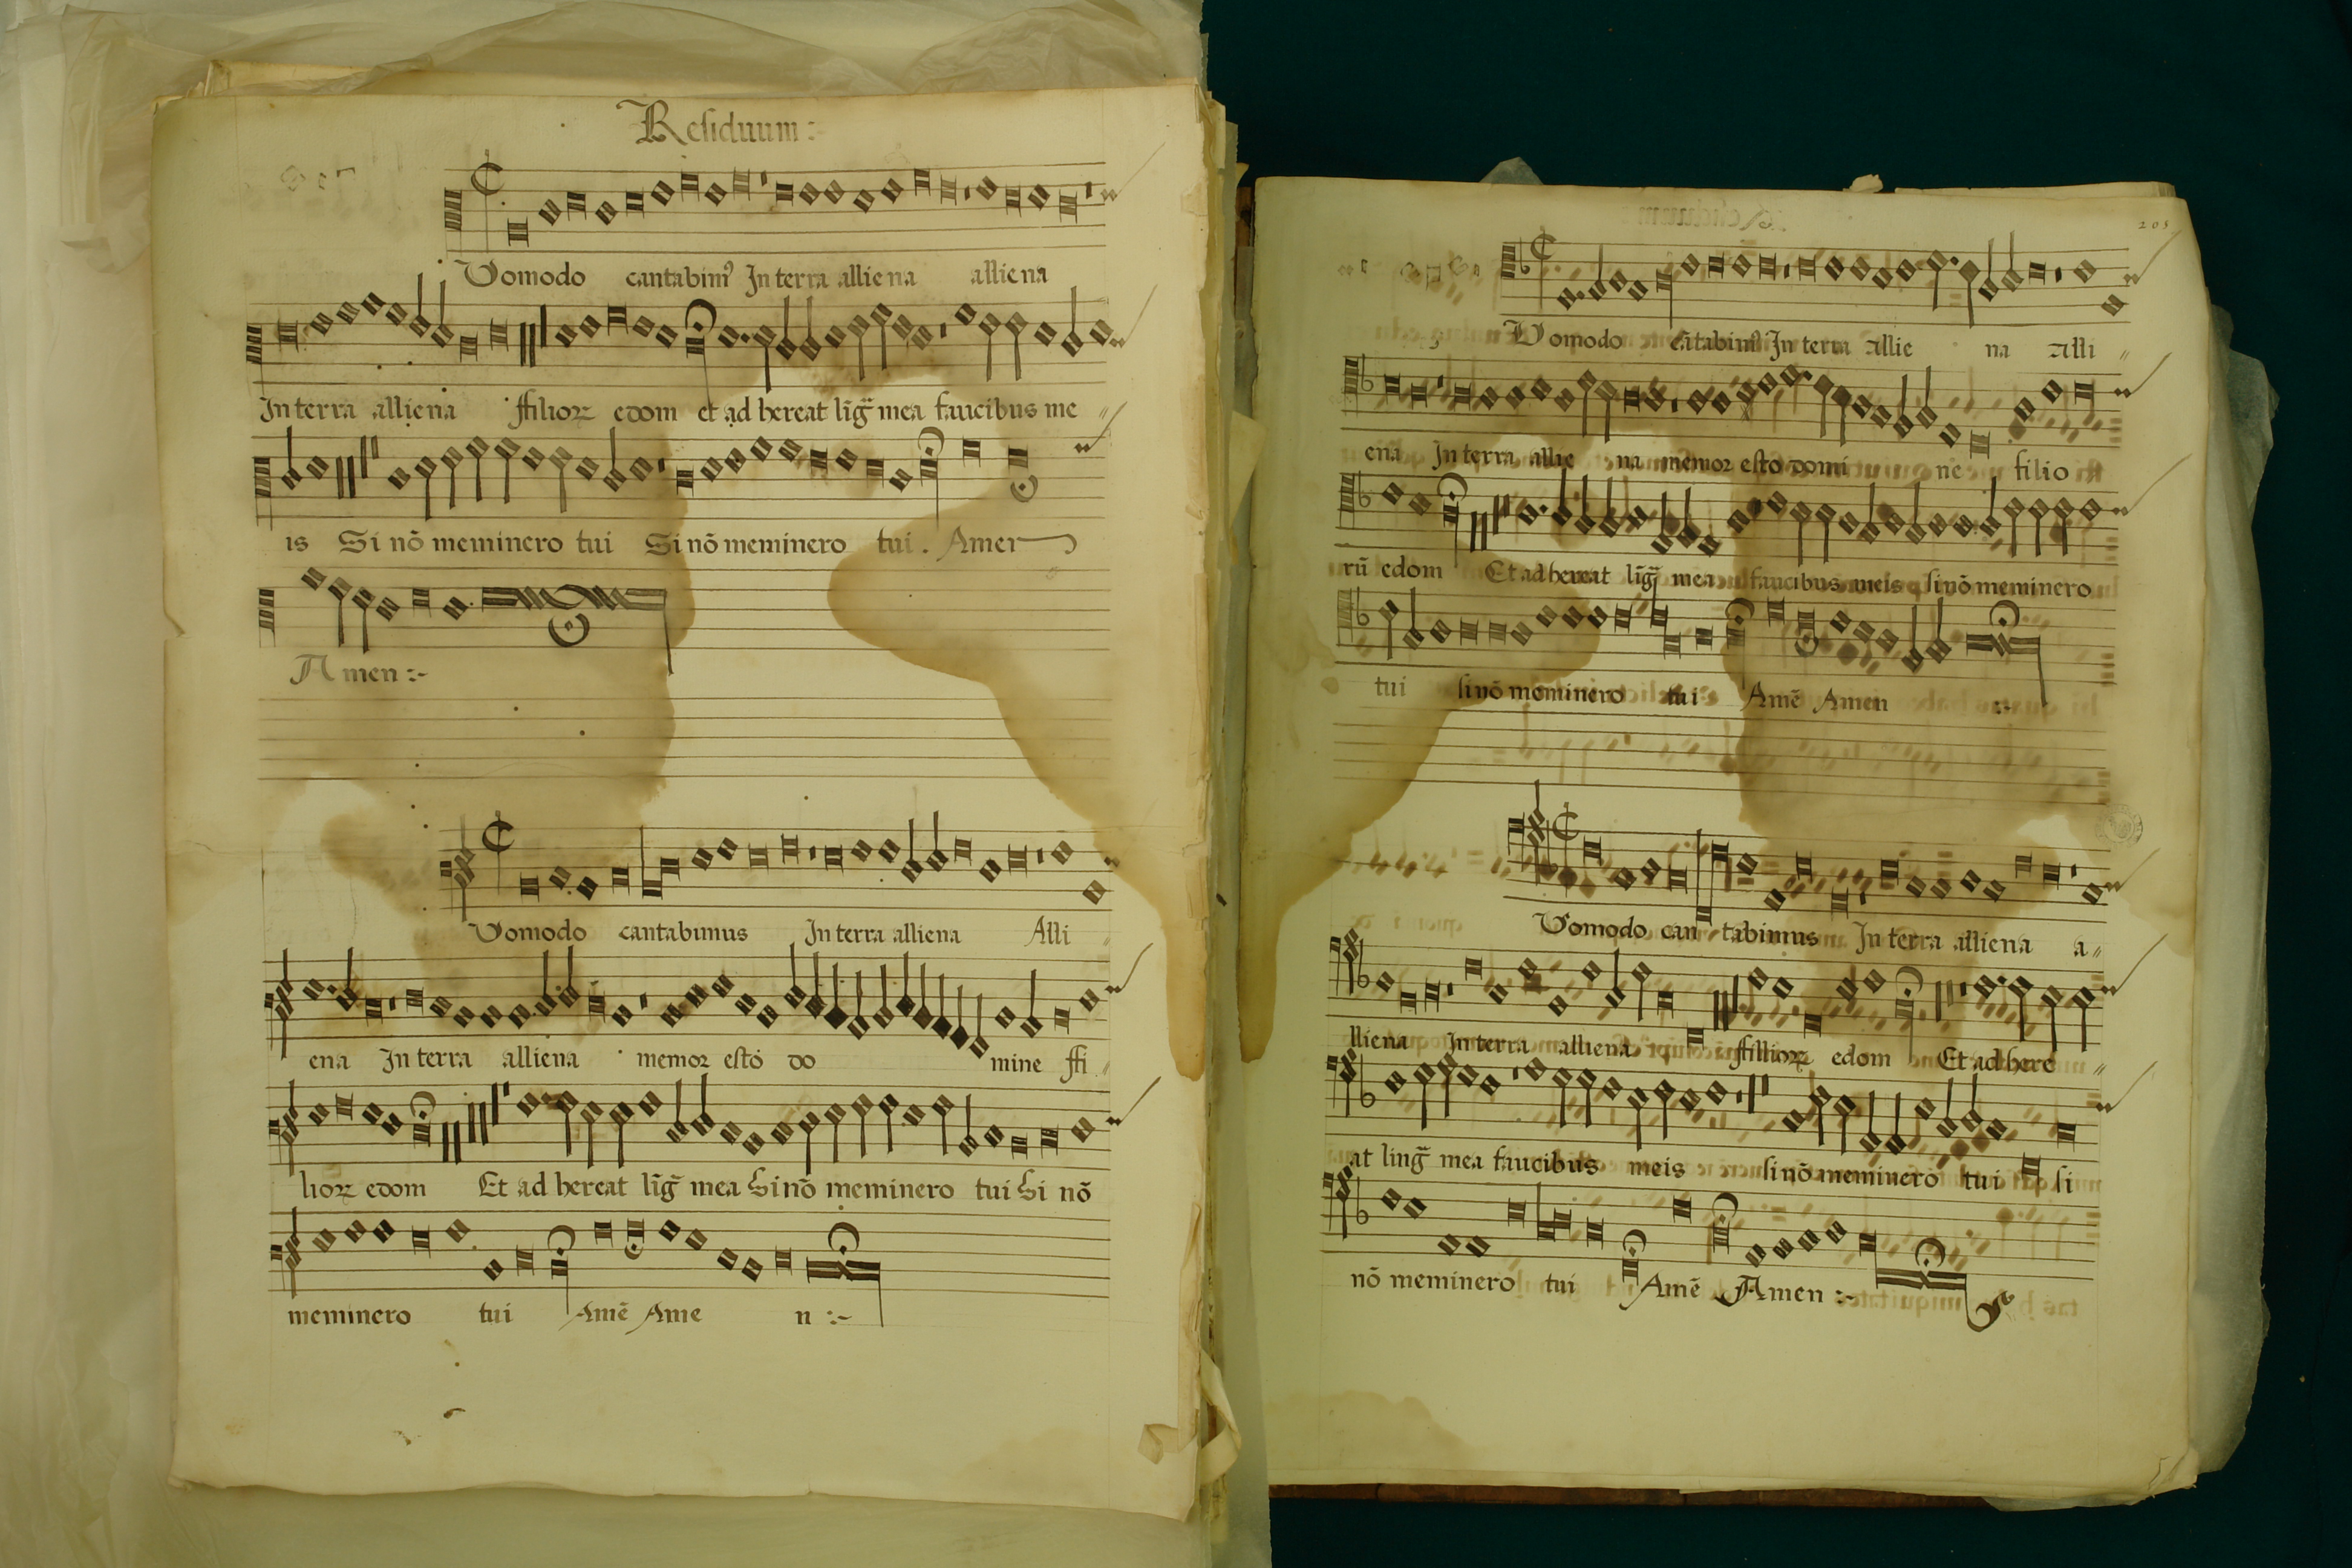 Residuum :~
Uomodo cantabimꝰ In terra alliena alliena
In terra alliena ffilioꝝ edom et ad hereat lĩg̃ mea faucibus me
is Si nõ meminero tui Si nõ meminero tui . Amen
Amen :~
Uomodo cantabimus In terra alliena Alli
ena In terra alliena memor esto do mine ffi
lioꝝ edom Et ad hereat lĩg̃ mea Si nõ meminero tui Si nõ
meminero tui Amẽ Ame n :~
205
Uomodo cãtabimꝰ In terra allie na alli
ena In terra allie na memor esto domi ne filio
rũ edom Et ad hereat lĩg̃ mea faucibus meis si nõ meminero
tui si nõ meminero tui Amẽ Amen :~
Uomodo can tabimus In terra alliena a
lliena In terra alliena ffillioꝝ edom Et ad here
at ling̃ mea faucibus meis si nõ meminero tui si
nõ meminero tui Amẽ Amen :~